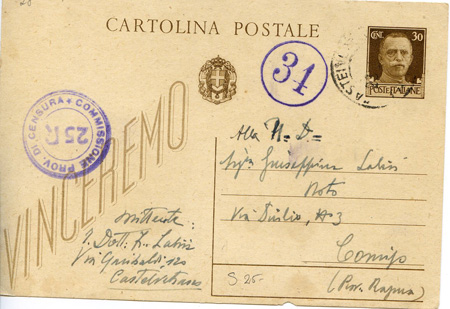 CARTOLINA POSTALE
CENT. 30
POSTE ITALIANE
31
COMMISSIONE PROV. DI CENSURA
25R
VINCEREMO
Alla N. D.
Sig.ra Giuseppina
Noto
Via Duilio, N° 3
Comiso
(Prov. Ragusa)
Mittente:
Dott.
Via Garibaldi 120
Castelvetrano
S. 25-